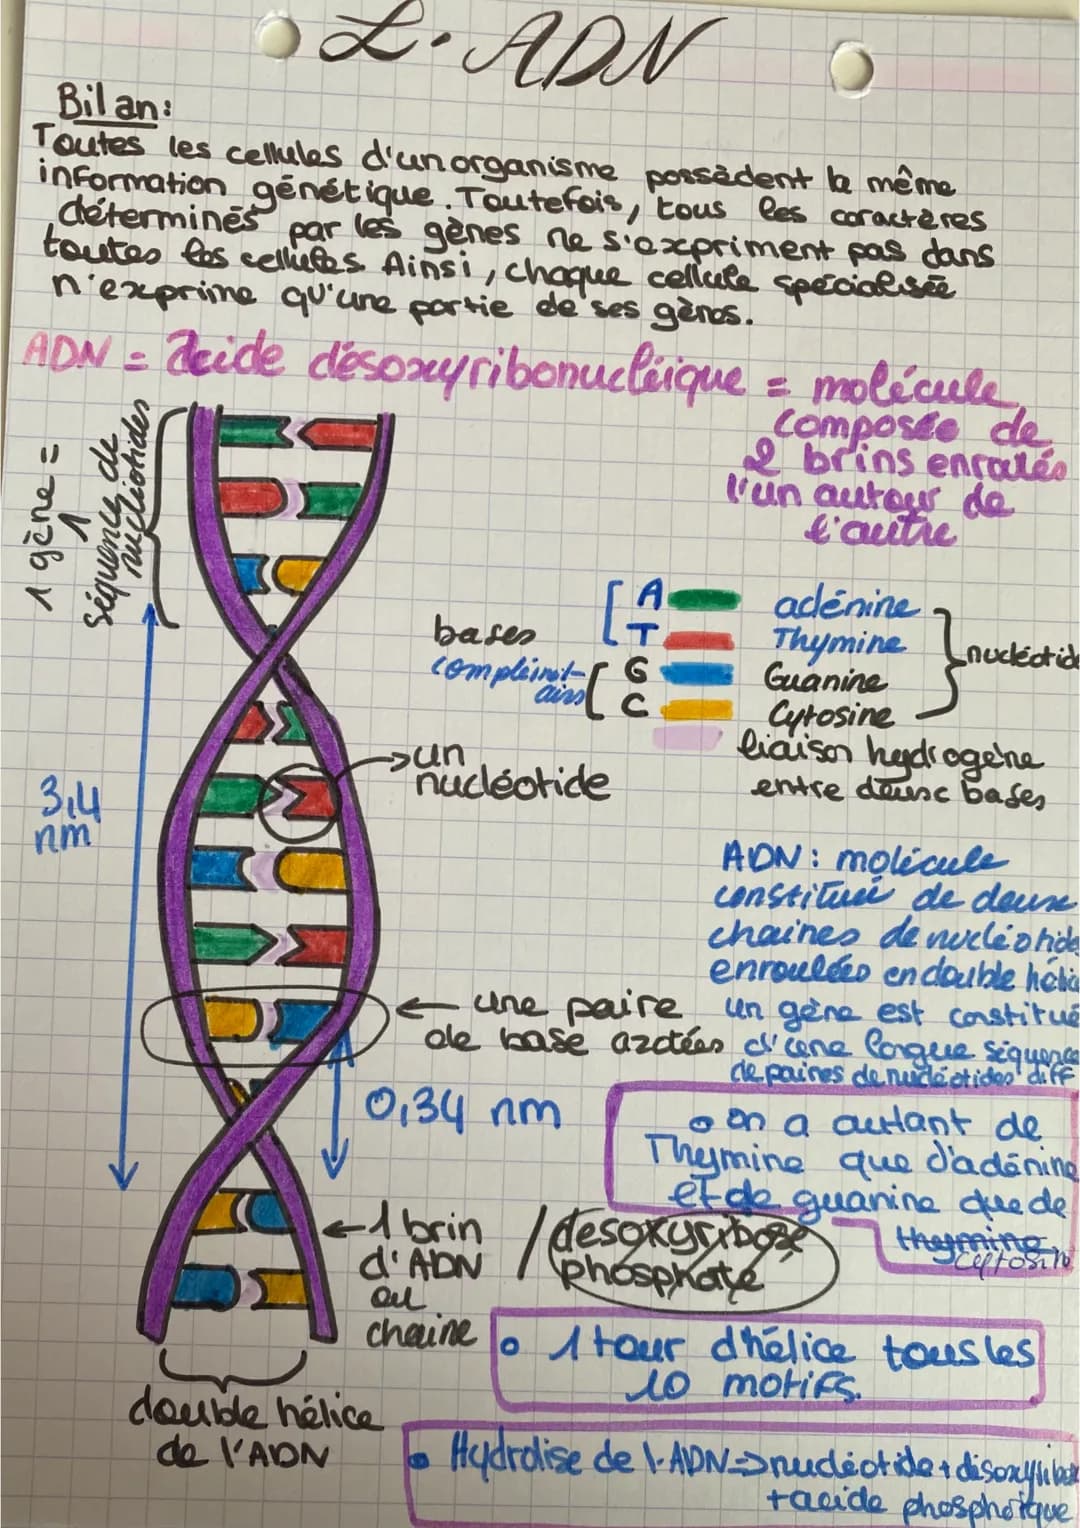 L'ADN
Bilan:
Toutes les cellules d'un organisme possèdent la même
information génétique. Toutefois, tous les caractères
déterminés par les gènes ne s'expriment pas dans
toutes les cellules. Ainsi, chaque cellule spécialisée
n'exprime qu'une partie de ses gènes.
ADN = acide désoxyribonucléique = molécule
composée de
2 brins enroulés
l'un autour de
l'autre
1 gène =
1
séquence de
nucléotides
bases
complémentaires
A adénine
T Thymine
G Guanine
C Cytosine
nucléotid
liaison hydrogène
entre deux bases
un
nucléotide
3,4
nm
ADN: molécule
constitué de deux
chaines de nucléotide
enroulées en double hélic
un gène est constitué
d'une longue séquence
de paires de nucléotides diff
← une paire
de base azotées
0,34 nm
• on a autant de
Thymine que d'adénine
et de guanine que de
thymine
cytosin
← 1 brin
d'ADN
ou
chaine
/ desoxyribose
phosphate
• 1 tour d'hélice tous les
10 motifs.
double hélice
de l'ADN
• Hydrolise de l'ADN => nucléotide +
+ acide phosphorique